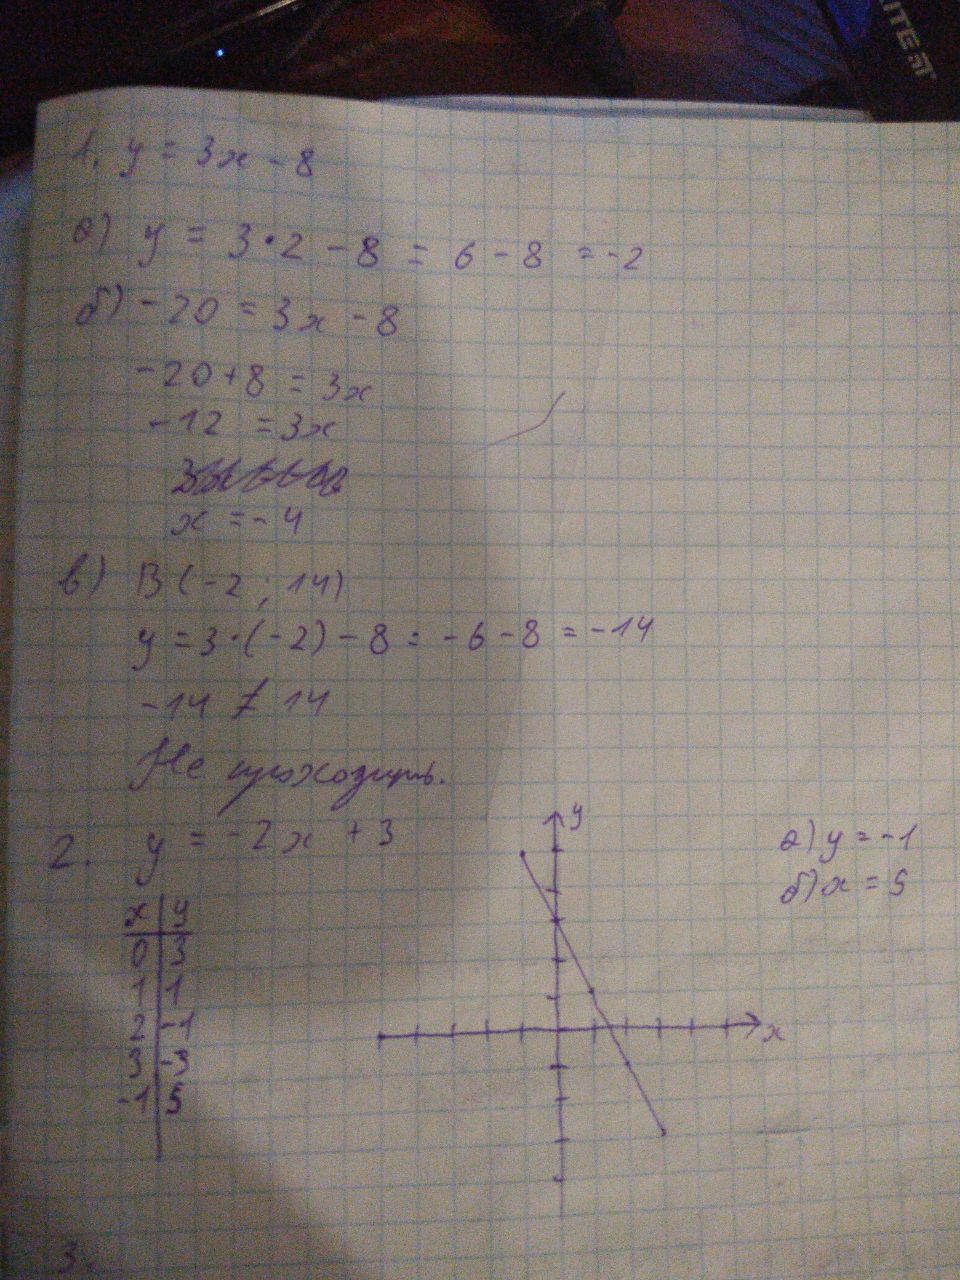 ITEST
1. y = 3x - 8
а) y = 3·2 - 8 = 6 - 8 = -2
б) -20 = 3x - 8
-20+8 = 3x
-12 = 3x
x = -4
в) B (-2 ; 14)
y = 3·(-2) - 8 = -6 - 8 = -14
-14 ≠ 14
Не проходить.
2. y = -2x + 3
x y
0 3
1 1
2 -1
3 -3
-1 5
y
x
а) y = -1
б) x = 5
3.